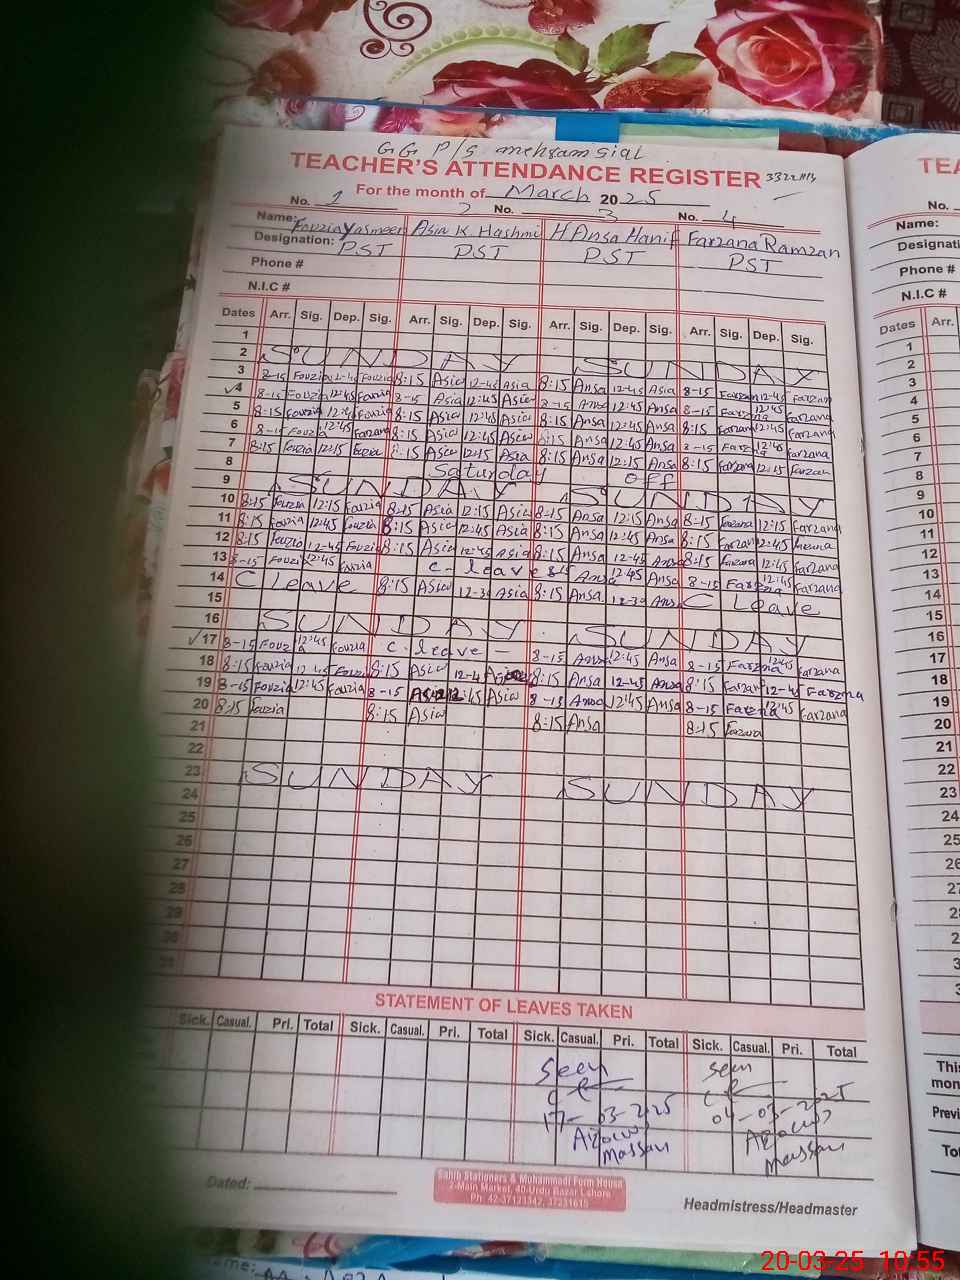 GG P/S mehramsial
TEACHER'S ATTENDANCE REGISTER 33221113
For the month of March 2025
No. 1 2 No. 3 No. 4
Name: Fouzia Yasmeen Asia K Hashmi H Ansa Hanif Farzana Ramzan
Designation: PST PST PST PST
Phone #
N.I.C #
Dates Arr. Sig. Dep. Sig. Arr. Sig. Dep. Sig. Arr. Sig. Dep. Sig. Arr. Sig. Dep. Sig.
1
2 SUNDAY SUNDAY
3 8-15 Fouzia 12-45 Fouzia 8:15 Asia 12-45 Asia 8:15 Ansa 12-45 Asia 8-15 Farzan 12-45 Farzan
4 8-15 Fouzia 12:45 Fouzia 8-15 Asia 12:45 Asia 8-15 Ansa 12:45 Ansa 8-15 Farzna 12:45 Farzana
5 8:15 Fouzia 12:45 Fouzia 8:15 Asia 12:45 Asia 8:15 Ansa 12:45 Ansa 8:15 Farzan 12:45 Farzana
6 8-15 Fouzia 12:45 8:15 Asia 12:45 Asia 8:15 Ansa 12:45 Ansa 8-15 Farzna 12:45 Farzana
7 8:15 Fouzia 12:15 Fozia 8:15 Asia 12:15 Asia 8:15 Ansa 12:15 Ansa 8:15 Farzana 12:15 Farzan
8 Saturday off
9 SUNDAY SUNDAY
10 8:15 Fouzia 12:15 Fouzia 8:15 Asia 12:15 Asia 8:15 Ansa 12:15 Ansa 8:15 Farzana 12:15 Farzana
11 8:15 Fouzia 12:45 Fouzia 8:15 Asia 12:45 Asia 8:15 Ansa 12:45 Ansa 8:15 Farzan 12:45
12 8:15 Fouzia 12-45 Fouzia 8:15 Asia 12:45 Asia 8:15 Ansa 12-45 Ansa 8:15 Farzana 12:45 Farzana
13 8-15 Fouzia 12:45 Fouzia c-leave 8:15 Ansa 12:45 Ansa 8-15 Farzna 12:45 Farzana
14 C Leave 8:15 Asia 12-30 Asia 8:15 Ansa 12-30 Ansa C Leave
15
16 SUNDAY SUNDAY
17 8-15 Fouzia 12:45 Fouzia c-leave - 8-15 Ansa 12:45 Ansa 8-15 Farzna 12:45 Farzana
18 8:15 Fouzia 12:45 Fouzia 8:15 Asia 12-4 8:15 Ansa 12-45 Ansa 8:15 Farzan 12-45 Farzna
19 8-15 Fouzia 12:45 Fouzia 8-15 Asia 12:45 Asia 8-15 Ansa 12:45 Ansa 8-15 Farzna 12:45 Farzana
20 8:15 Fouzia 8:15 Asia 8:15 Ansa 8:15
21
22
23 SUNDAY SUNDAY
24
25
26
27
28
29
30
31
STATEMENT OF LEAVES TAKEN
Sick. Casual. Pri. Total Sick. Casual. Pri. Total Sick. Casual. Pri. Total Sick. Casual. Pri. Total
Seen seen
17-03-2025 04-03-2025
Dated:
Sahib Stationers & Muhammadi Form House
2-Main Market, 40-Urdu Bazar Lahore
Ph: 42-37121342, 37231615
Headmistress/Headmaster
TEA
No.
Name:
Designati
Phone #
N.I.C #
Dates Arr.
1
2
3
4
5
6
7
8
9
10
11
12
13
14
15
16
17
18
19
20
21
22
23
24
25
26
27
28
This
mon
Previ
To
20-03-25 10:55